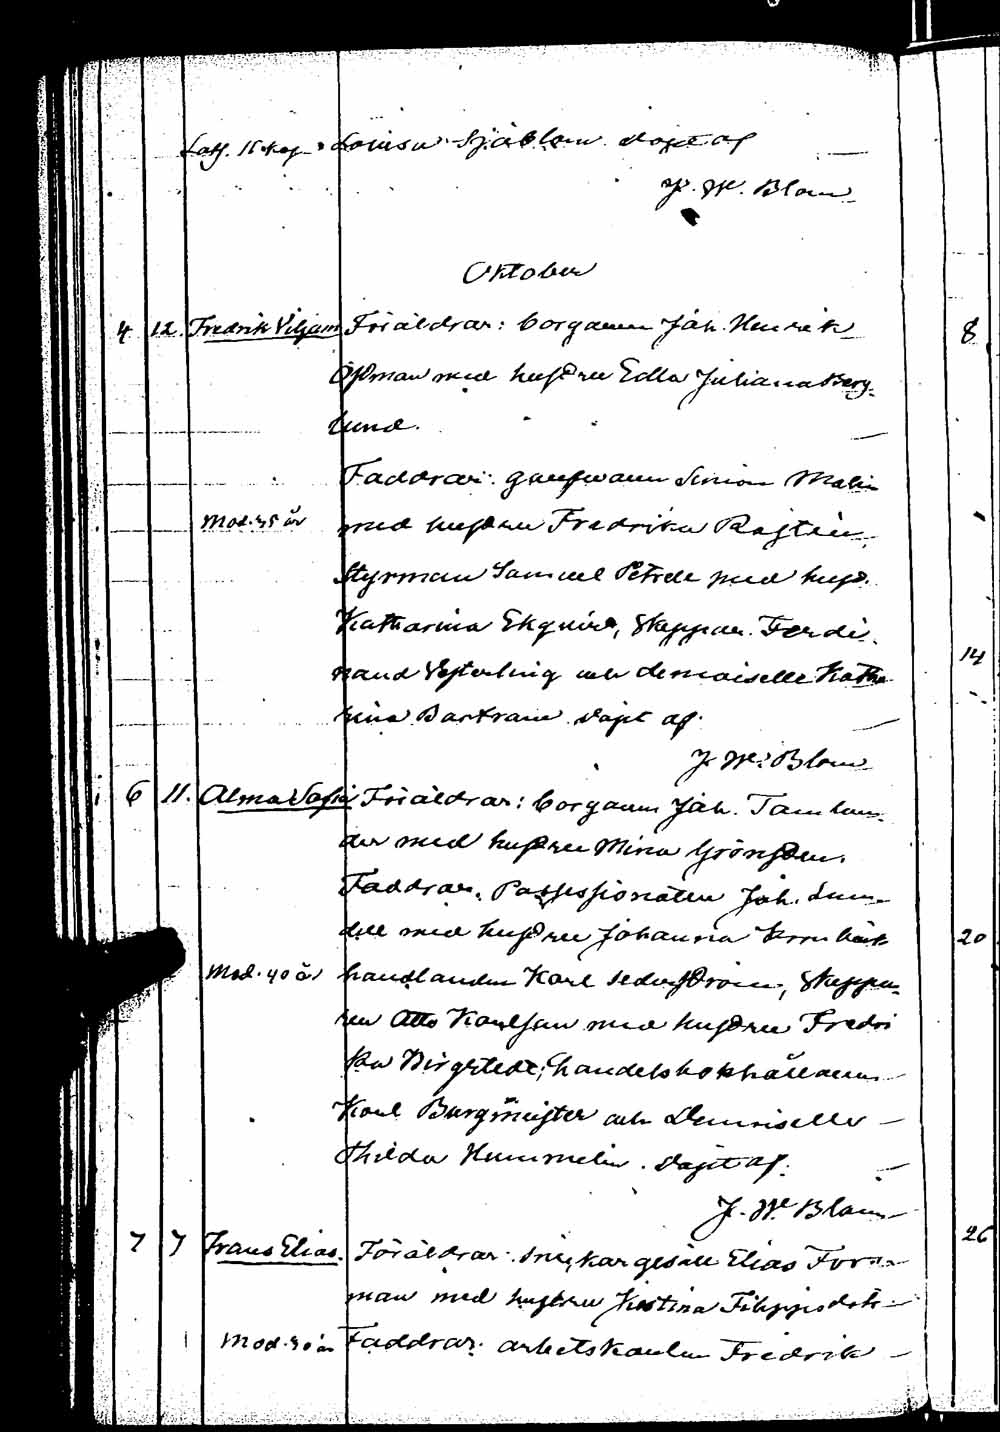 Louisa Sjöblom döpt af
J. W. Blom
Oktober
4 12. Fredrik Viljam Föräldrar: borgaren Joh. Henrik 8
Öhman med hustru Edla Juliana Berg-
lund.
Faddrar: Simon Malin
Mod. 35 år med hustru Fredrika
Styrman Samuel Petrell med hust.
Katharina Ekqvist, Skeppar Ferdi-
nand Vesterling och demoiselle Katha 14
rina Bartram döpt af
J. W. Blom
6 11. Alma Sofia Föräldrar: borgaren Joh. Tamlan-
der med hustru Mina Grönsten.
Faddrar. Possessionaten Joh. Lun-
dell med hustru Johanna 20
Mod. 40 år handlanden Karl Sederström, Skeppa-
ren Otto Karlsson med hustru Fredri
ka Birgstedt, handelsbokhållaren
Karl Burgmeister och Demoiselle
Thilda Hummelin. döpt af.
J. W. Blom
7 7 Frans Elias. Föräldrar: snickargesäll Elias For- 26
man med hustru Kristina Filippsdotr
Mod. 30 år Faddrar. arbetskarlen Fredrik